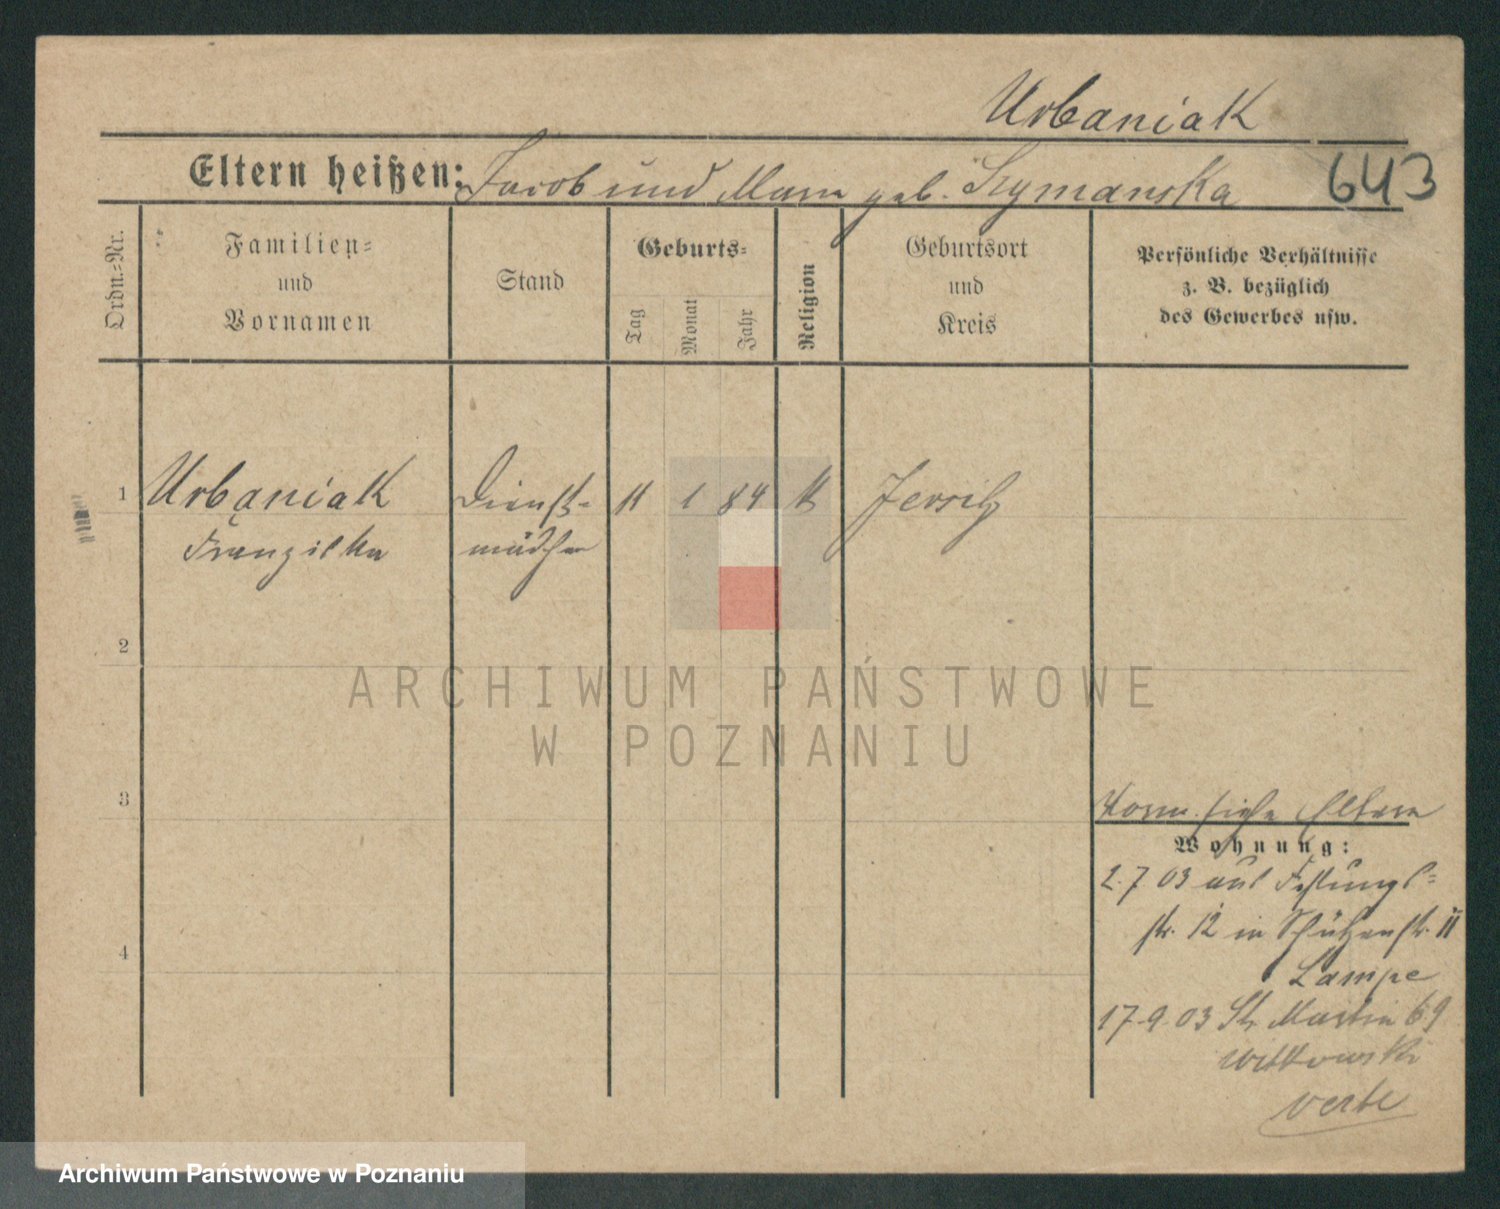 Urbaniak
Eltern heißen: Jacob und Marie geb. Szymanska
643
Ordn.-Nr.
Familien-
und
Vornamen
Stand
Geburts-
Tag
Monat
Jahr
Religion
Geburtsort
und
Kreis
Persönliche Verhältnisse
z. B. bezüglich
des Gewerbes usw.
1 Urbaniak Dienst- 11 1 84 k Jersitz
Franziska mädchen
2
ARCHIWUM PAŃSTWOWE
W POZNANIU
3
siehe Eltern
Wohnung:
2.7 03 aus Festungs-
str. 12 in Schützenstr. 11
4
Lampe
17.9.03 St. Martin 69
Witkowski
verte
Archiwum Państwowe w Poznaniu